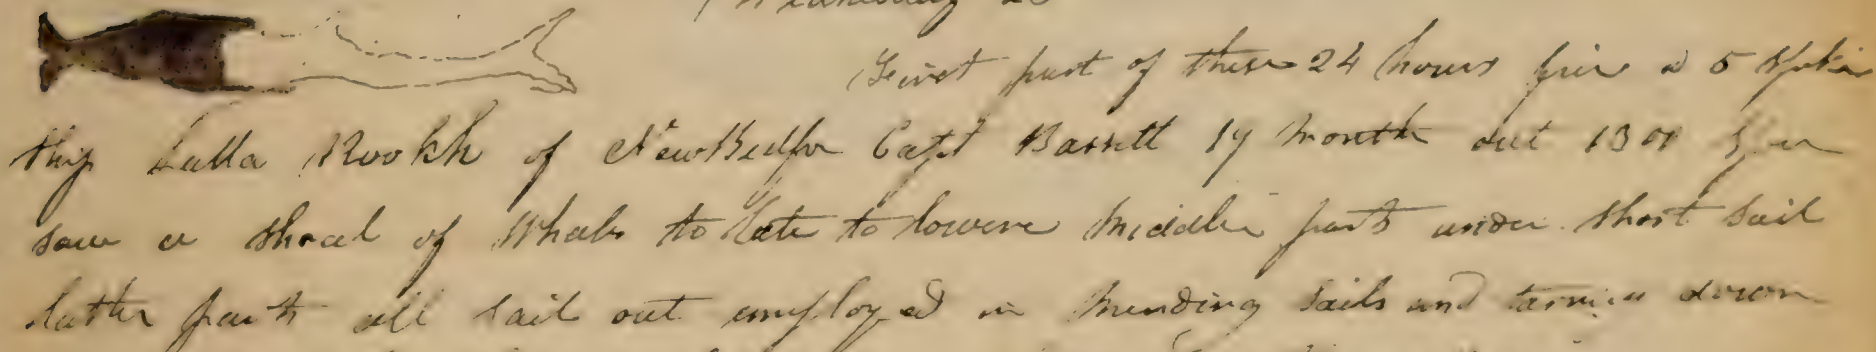 Wednesday 26
First part of these 24 hours fair at 5 Spoke
Ship Lalla Rookh of New Bedfor Capt Bassett 17 month out 1300 Sper
saw a Shoal of Whale to late to lower Middle part under short sail
latter part all sail out employed in mending sails and tarring down